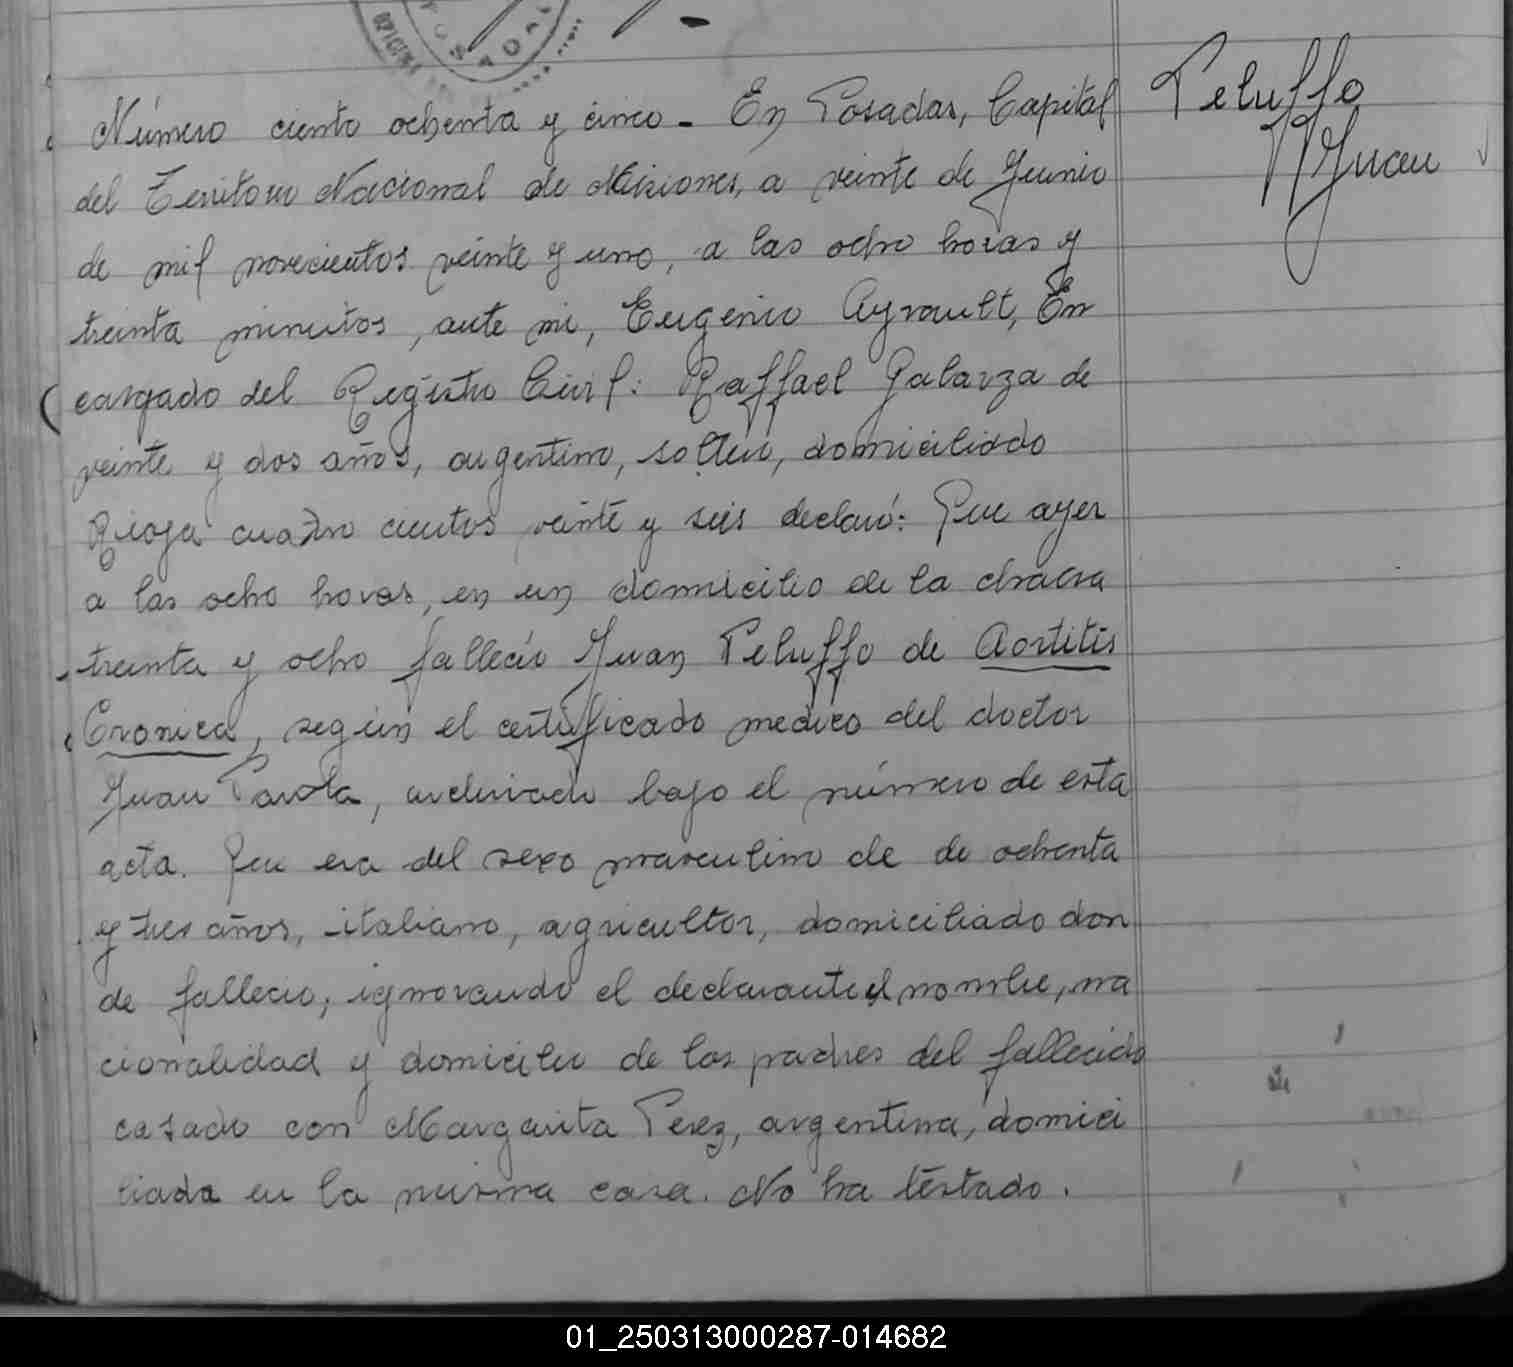 OFICINA
POSADAS
Número ciento ochenta y cinco - En Posadas, Capital
Peluffo
Juan
del Territorio Nacional de Misiones, a veinte de Junio
de mil novecientos veinte y uno, a las ocho horas y
treinta minutos, ante mi, Eugenio Ayrault, En
cargado del Registro Civil: Raffael Galarza de
veinte y dos años, argentino, soltero, domiciliado
Rioja cuatro cientos veinte y seis declaró: Que ayer
a las ocho horas, en un domicilio de la chacra
treinta y ocho falleció Juan Peluffo de Aortitis
Cronica, según el certificado medico del doctor
Juan Parola, archivado bajo el número de esta
acta. Que era del sexo masculino de de ochenta
y tres años, italiano, agricultor, domiciliado don
de fallecio, ignorando el declarante el nombre, na
cionalidad y domicilio de los padres del fallecido
casado con Margarita Perez, argentina, domici
liada en la misma casa. No ha testado.
01_250313000287-014682